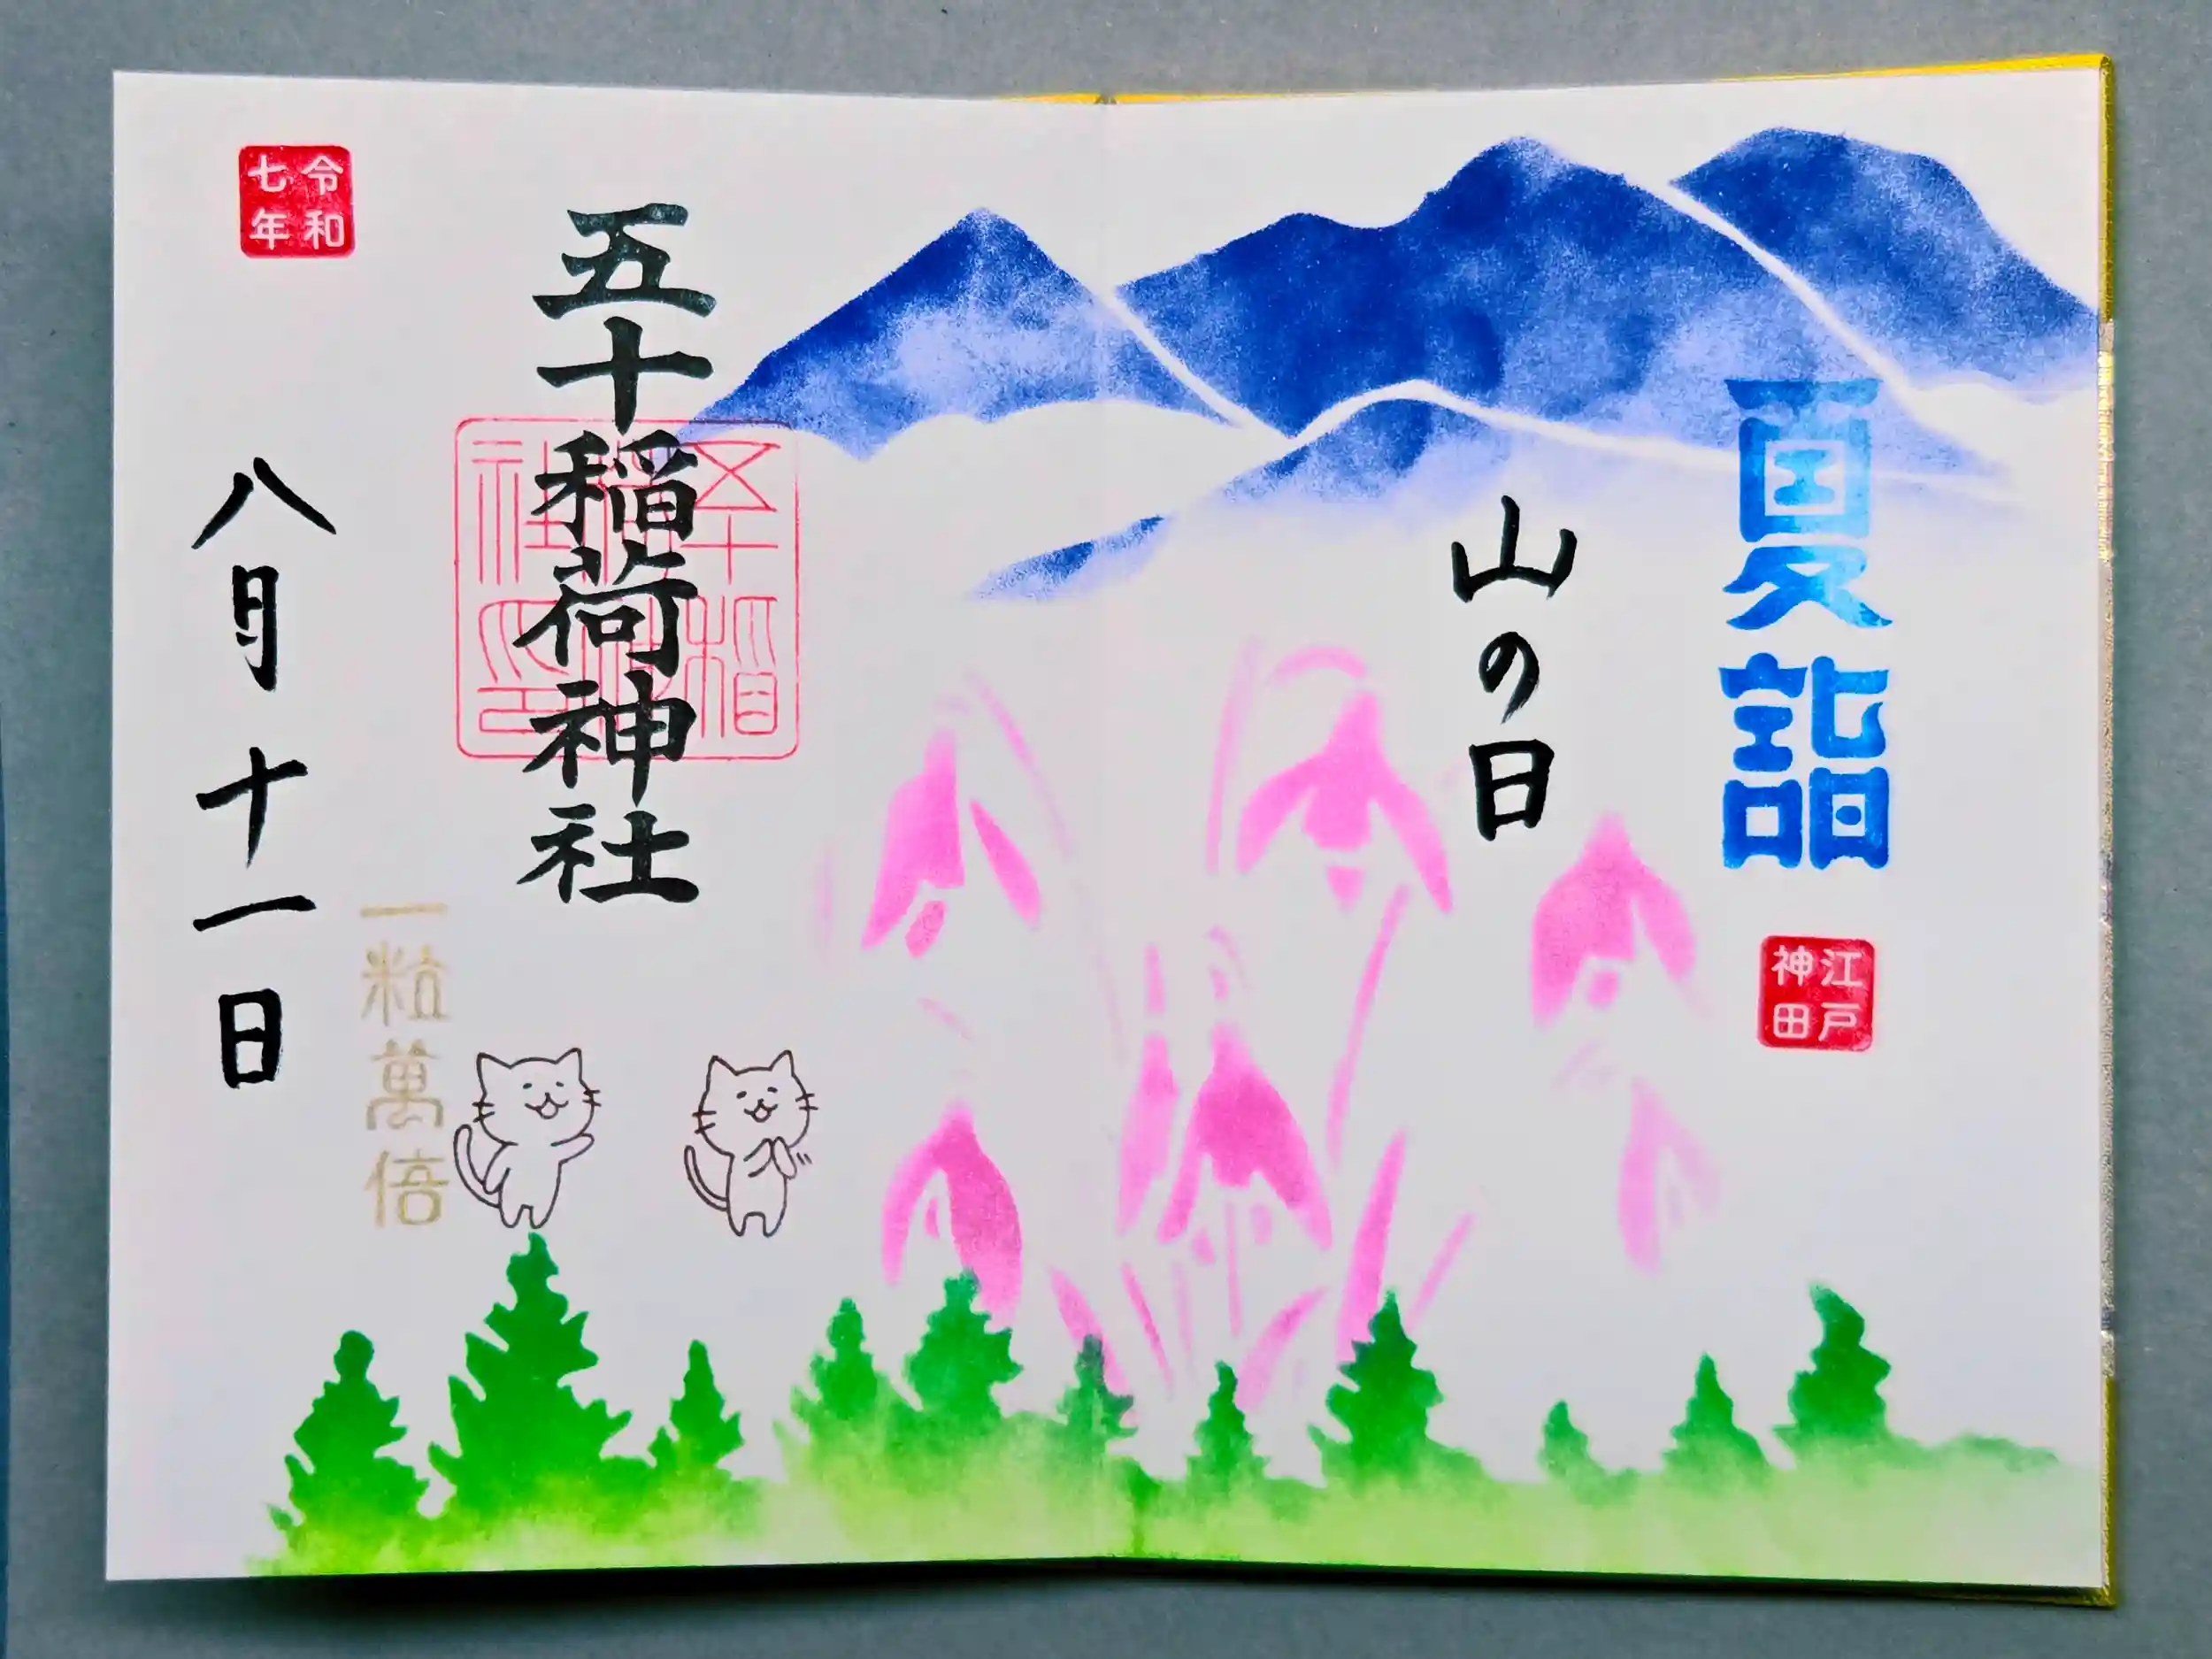 夏詣
江戸神田
山の日
五十稲荷神社
一粒萬倍
令和七年
八月十一日